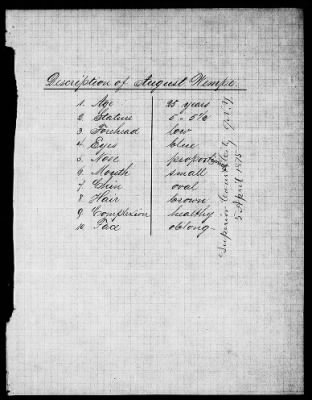 Description of August Wempe.
1. Age 25 years
2. Stature
3. Forehead low
4. Eyes blue
5. Nose
6. Mouth small
7. Chin oval
8. Hair brown
9. Complexion healthy
10. Face oblong
Superior
5 April 1875